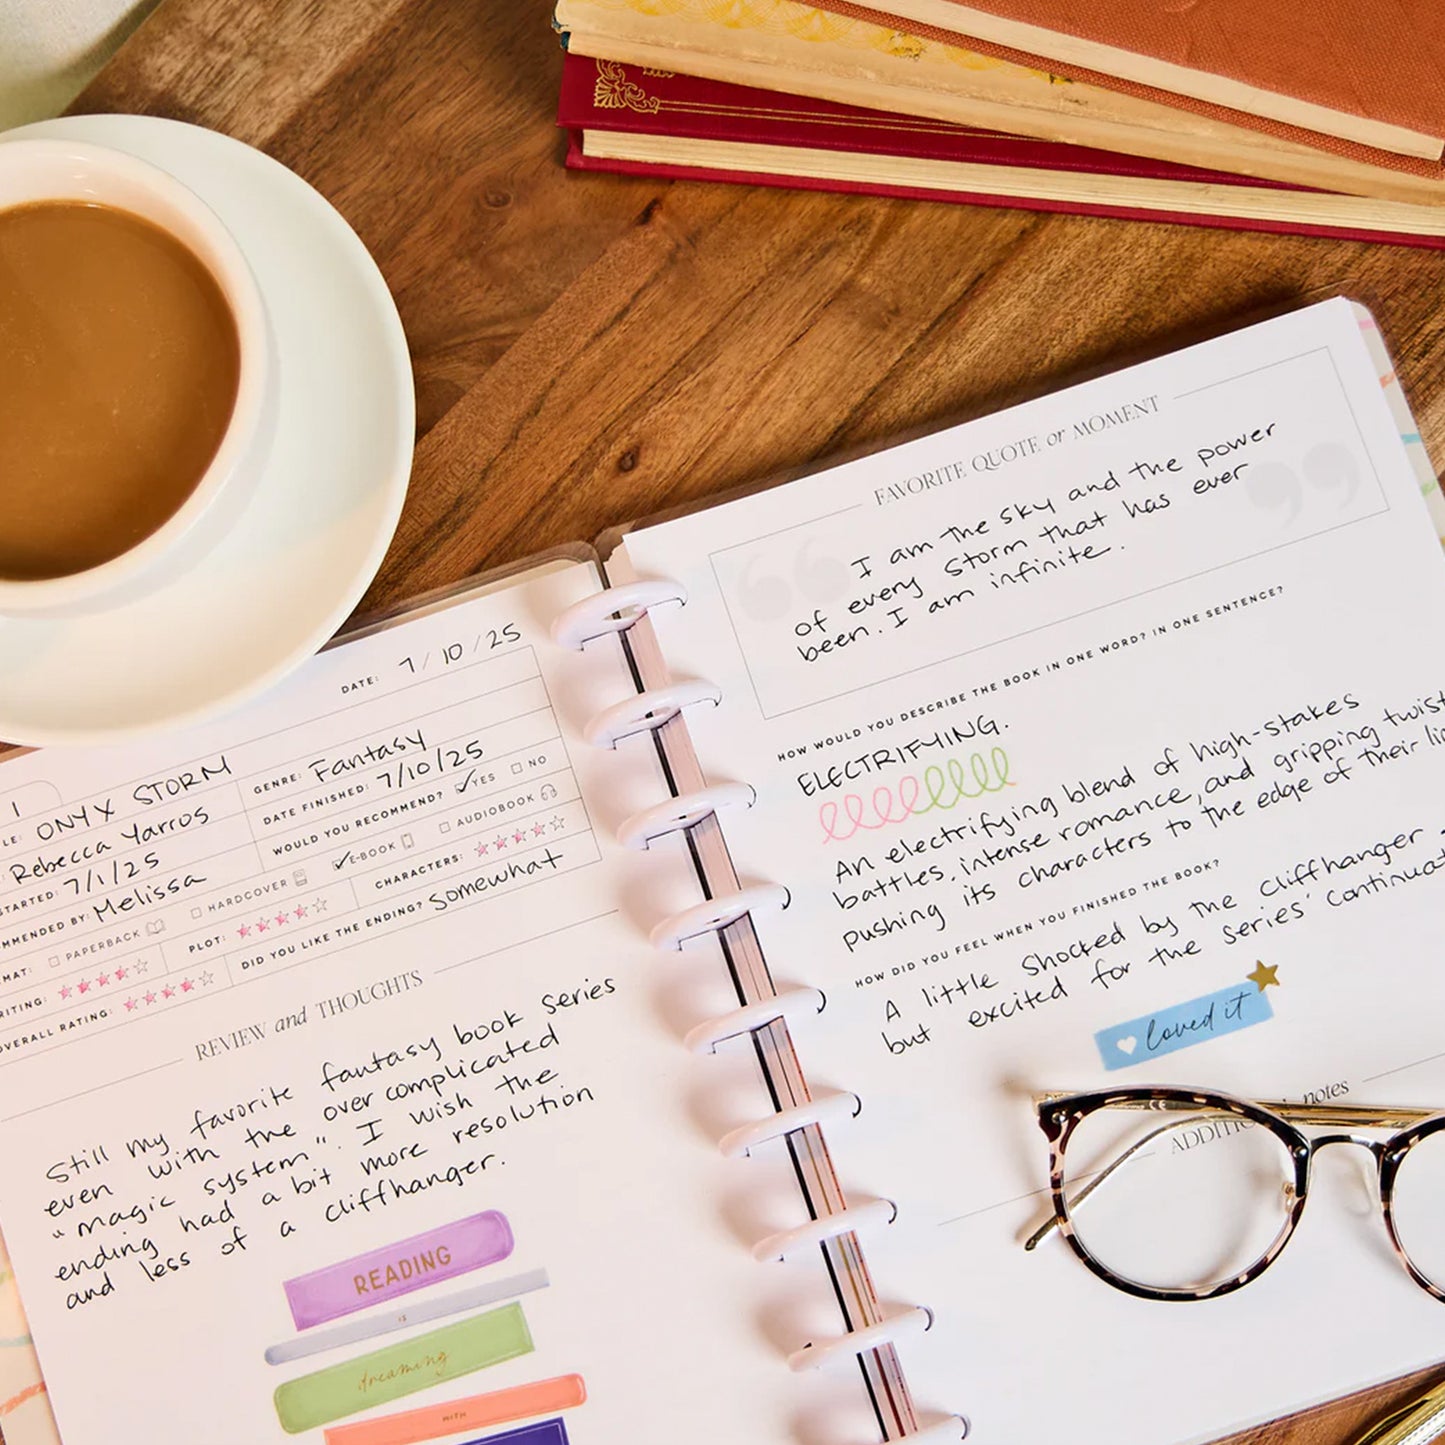 DATE: 7/10/25
1
ONYX STORM
GENRE: Fantasy
Rebecca Yarros
DATE FINISHED: 7/10/25
STARTED: 7/1/25
WOULD YOU RECOMMEND? ✓ YES NO
MMENDED BY: Melissa
MAT: PAPERBACK HARDCOVER ✓ E-BOOK AUDIOBOOK
RITING: PLOT: CHARACTERS:
OVERALL RATING: DID YOU LIKE THE ENDING? somewhat
REVIEW and THOUGHTS
Still my favorite fantasy book series
even with the over complicated
"magic system". I wish the
ending had a bit more resolution
and less of a cliffhanger.
READING
IS
dreaming
WITH
FAVORITE QUOTE or MOMENT
“ I am the sky and the power ”
of every storm that has ever
been. I am infinite.
HOW WOULD YOU DESCRIBE THE BOOK IN ONE WORD? IN ONE SENTENCE?
ELECTRIFYING.
An electrifying blend of high-stakes
battles, intense romance, and gripping twist
pushing its characters to the edge of their
HOW DID YOU FEEL WHEN YOU FINISHED THE BOOK?
A little shocked by the cliffhanger -
but excited for the series' continuat
loved it
notes